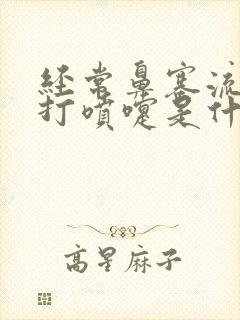 经常鼻塞流
打喷嚏是什
高星麻子